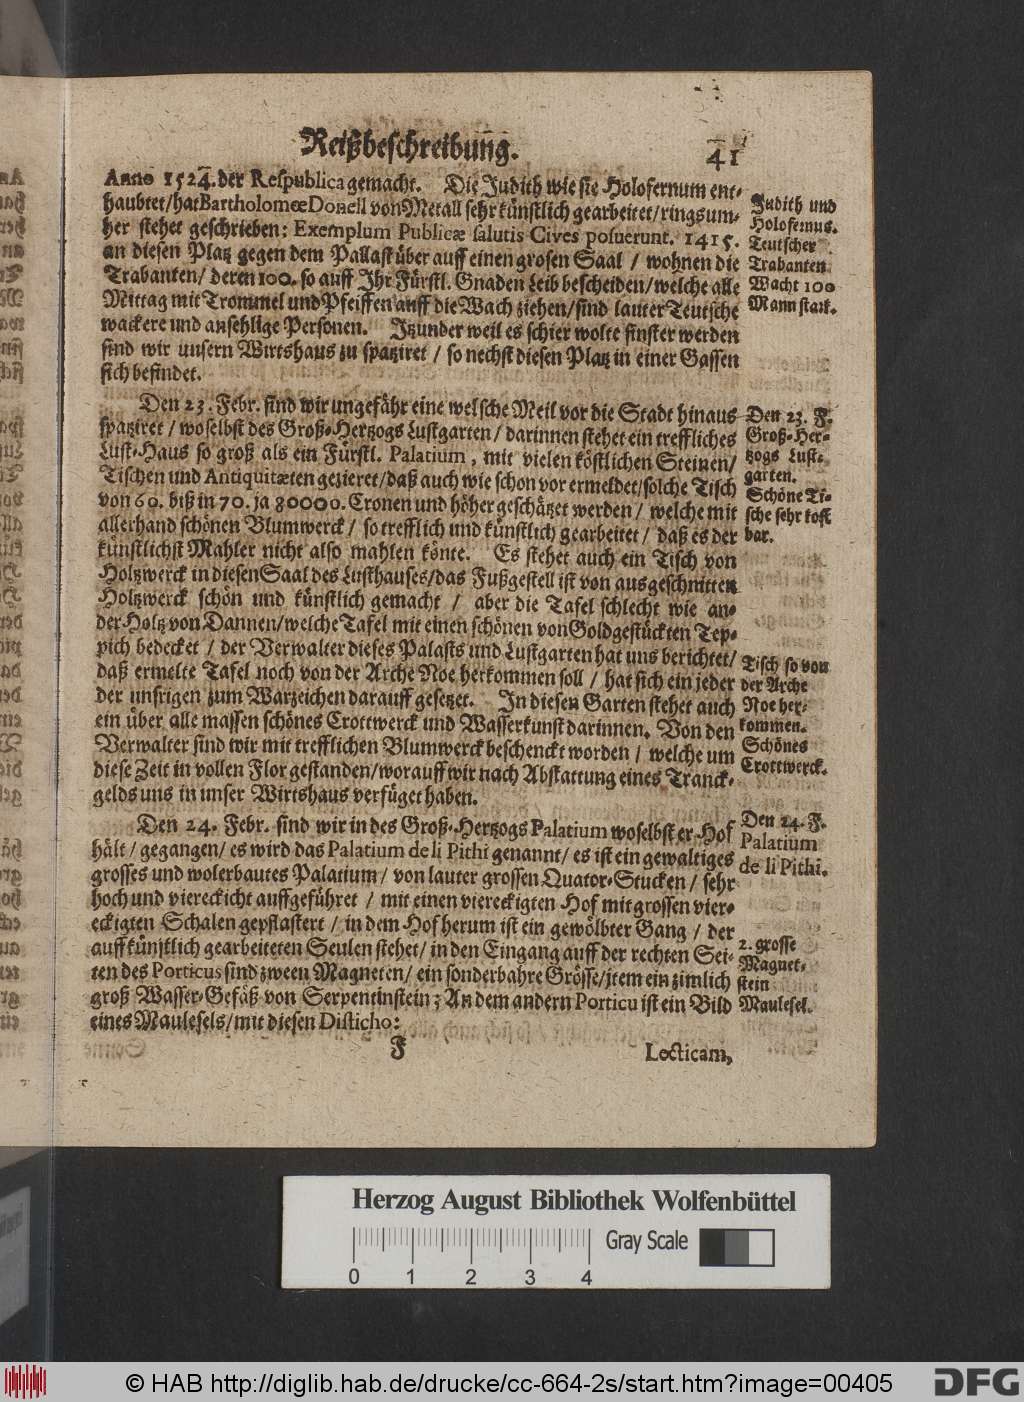 Reißbeschreibung.
41
Anno 1524. der Respublica gemacht. Die Judith wie sie Holofernum ent-
haubtet/hat Bartholomœe Donell von Metall sehr künstlich gearbeitet/rings um-
her stehet geschrieben: Exemplum Publicæ salutis Cives posuerunt. 1415.
an diesen Platz gegen dem Pallast über auff einen grosen Saal / wohnen die
Trabanten/ deren 100. so auff Jhr Fürstl. Gnaden Leib bescheiden/welche alle
Mittag mit Trommel und Pfeiffen auff die Wach ziehen/sind lauter Teutsche
wackere und ansehlige Personen. Jtzunder weil es schier wolte finster werden
sind wir unsern Wirtshaus zu spatziret / so nechst diesen Platz in einer Gassen
sich befindet.
Judith und
Holofernus.
Teutscher
Trabanten
Wacht 100
Mann stark.
Den 23. Febr. sind wir ungefähr eine welsche Meil vor die Stadt hinaus
spatziret / woselbst des Groß-Hertzogs Lustgarten/ darinnen stehet ein treffliches
Lust-Haus so groß als ein Fürstl. Palatium, mit vielen köstlichen Steinen/
Tischen und Antiquitæten gezieret/daß auch wie schon vor ermeldet/solche Tisch
von 60. biß in 70. ja 80000. Cronen und höher geschätzet werden / welche mit
allerhand schönen Blumwerck / so trefflich und künstlich gearbeitet / daß es der
künstlichst Mahler nicht also mahlen könte. Es stehet auch ein Tisch von
Holtzwerck in diesen Saal des Lusthauses/das Fußgestell ist von ausgeschnitten
Holtzwerck schön und künstlich gemacht / aber die Tafel schlecht wie an-
der Holtz von Dannen/welche Tafel mit einen schönen von Goldgestückten Tep-
pich bedecket / der Verwalter dieses Palasts und Lustgarten hat uns berichtet/
daß ermelte Tafel noch von der Arche Noe herkommen soll / hat sich ein jeder
der unsrigen zum Warzeichen darauff gesetzet. Jn diesen Garten stehet auch
ein über alle massen schönes Crottwerck und Wasserkunst darinnen. Von den
Verwalter sind wir mit trefflichen Blumwerck beschenckt worden / welche um
diese Zeit in vollen Flor gestanden/worauff wir nach Abstattung eines Tranck-
gelds uns in unser Wirtshaus verfüget haben.
Den 23. F.
Groß-Her-
tzogs Lust-
garten.
Schöne Ti-
sche sehr kost
bar.
Tisch so von
der Arche
Noe her-
kommen.
Schönes
Crottwerck.
Den 24. Febr. sind wir in des Groß-Hertzogs Palatium woselbst er Hof
hält / gegangen/ es wird das Palatium de li Pithi genannt/ es ist ein gewaltiges
grosses und wolerbautes Palatium / von lauter grossen Quator-Stucken / sehr
hoch und viereckicht auffgeführet / mit einen viereckigten Hof mit grossen vier-
eckigten Schalen gepflastert / in dem Hof herum ist ein gewölbter Gang / der
auff künstlich gearbeiteten Seulen stehet/ in den Eingang auff der rechten Sei-
ten des Porticus sind zween Magneten/ ein sonderbahre Grösse/jtem ein zimlich
groß Wasser-Gefäß von Serpentinstein ; An dem andern Porticu ist ein Bild
eines Maulesels/mit diesen Disticho:
Den 24. F.
Palatium
de li Pithi.
2. grosse
Magnet-
stein
Maulesel.
F
Lecticam,
Herzog August Bibliothek Wolfenbüttel
Gray Scale
0 1 2 3 4
© HAB http://diglib.hab.de/drucke/cc-664-2s/start.htm?image=00405
DFG